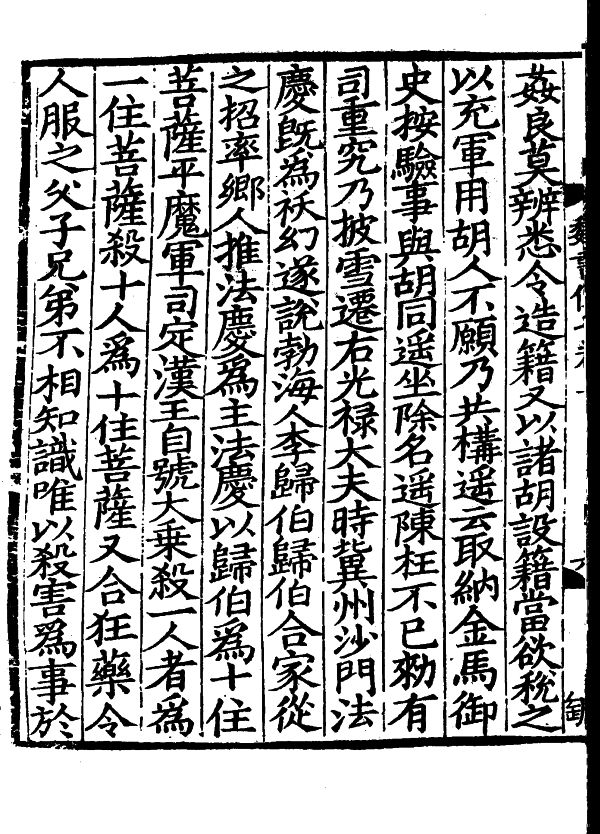 姦良莫辨悉令造籍又以諸胡設籍當欲稅之
以充軍用胡人不願乃共構遥云取納金馬御
史按驗事與胡同遥坐除名遥陳枉不已勑有
司重究乃披雪遷右光禄大夫時冀州沙門法
慶旣為祅幻遂說勃海人李歸伯歸伯合家從
之招率鄉人推法慶為主法慶以歸伯爲十住
菩薩平魔軍司定漢王自號大乗殺一人者爲
一住菩薩殺十人爲十住菩薩又合狂藥令
人服之父子兄弟不相知識唯以殺害爲事於